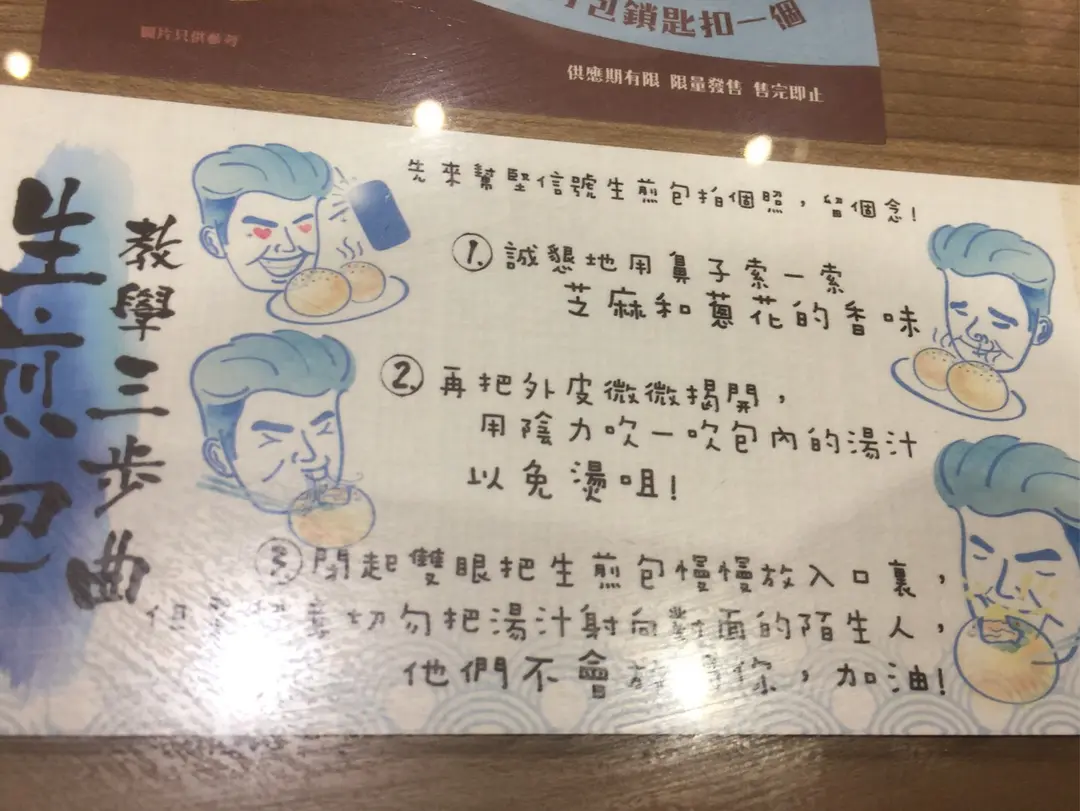 包鎖匙扣一個
圖片只供參考
供應期有限 限量發售 售完即止
生煎包
教學三步曲
先來幫堅信號生煎包拍個照，留個念！
1. 誠懇地用鼻子索一索
芝麻和蔥花的香味
2. 再把外皮微微揭開，
用陰力吹一吹包內的湯汁
以免燙咀！
3. 閉起雙眼把生煎包慢慢放入口裏，
但切勿把湯汁射向對面的陌生人，
他們不會放你，加油！